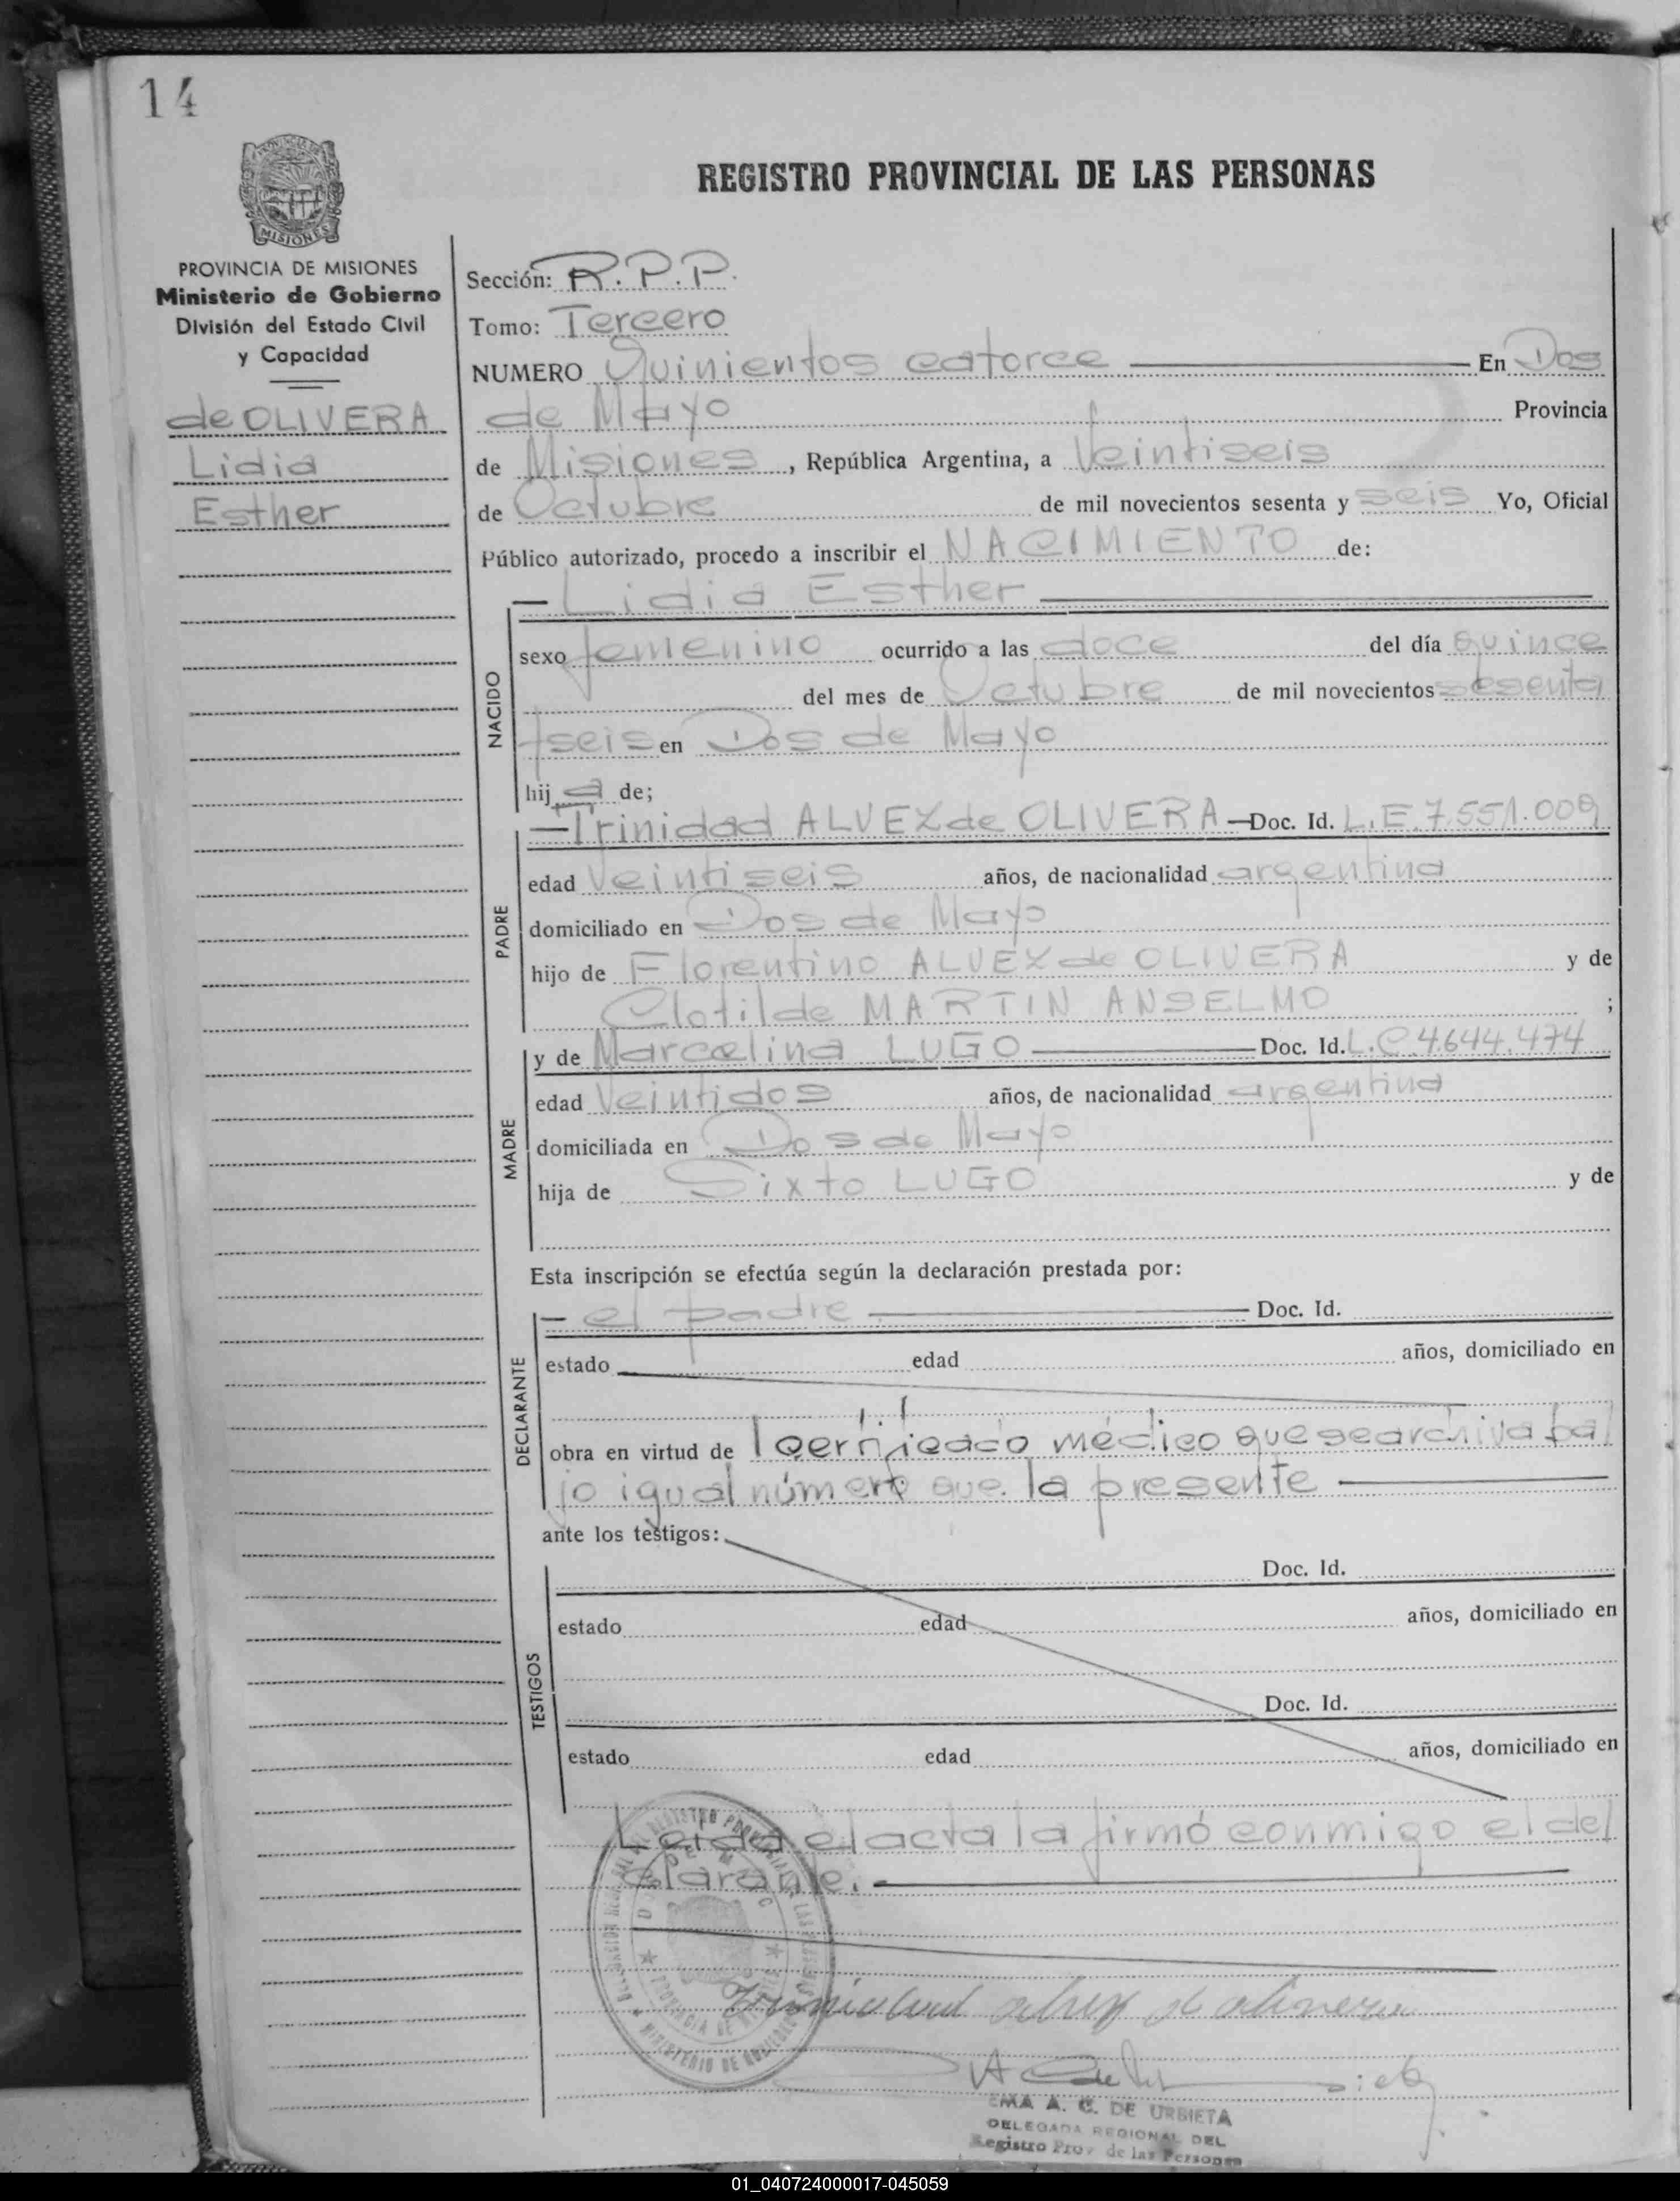 14
MISIONES
REGISTRO PROVINCIAL DE LAS PERSONAS
PROVINCIA DE MISIONES
Ministerio de Gobierno
División del Estado Civil
y Capacidad
de OLIVERA
Lidia
Esther
Sección: R.P.P.
Tomo: Tercero
NUMERO Quinientos catorce En Dos
de Mayo Provincia
de Misiones, República Argentina, a Veintiseis
de Octubre de mil novecientos sesenta y seis Yo, Oficial
Público autorizado, procedo a inscribir el NACIMIENTO de:
Lidia Esther
NACIDO
sexo femenino ocurrido a las doce del día quince
del mes de Octubre de mil novecientos sesenta
y seis en Dos de Mayo
hija de;
PADRE
Trinidad ALVEZ de OLIVERA Doc. Id. L.E. 7.551.009
edad Veintiseis años, de nacionalidad argentina
domiciliado en Dos de Mayo
hijo de Florentino ALVEZ de OLIVERA y de
Clotilde MARTIN ANSELMO ;
MADRE
y de Marcelina LUGO Doc. Id. L.C. 4.644.474
edad Veintidos años, de nacionalidad argentina
domiciliada en Dos de Mayo
hija de Sixto LUGO y de
Esta inscripción se efectúa según la declaración prestada por:
DECLARANTE
el padre Doc. Id.
estado edad años, domiciliado en
obra en virtud de certificado médico que se archiva ba
jo igual número que la presente
ante los testigos:
TESTIGOS
Doc. Id.
estado edad años, domiciliado en
Doc. Id.
estado edad años, domiciliado en
Leída el acta la firmó conmigo el de
clarante.
EMA A. C. DE URBIETA
DELEGADA REGIONAL DEL
Registro Prov de las Personas
01_040724000017-045059